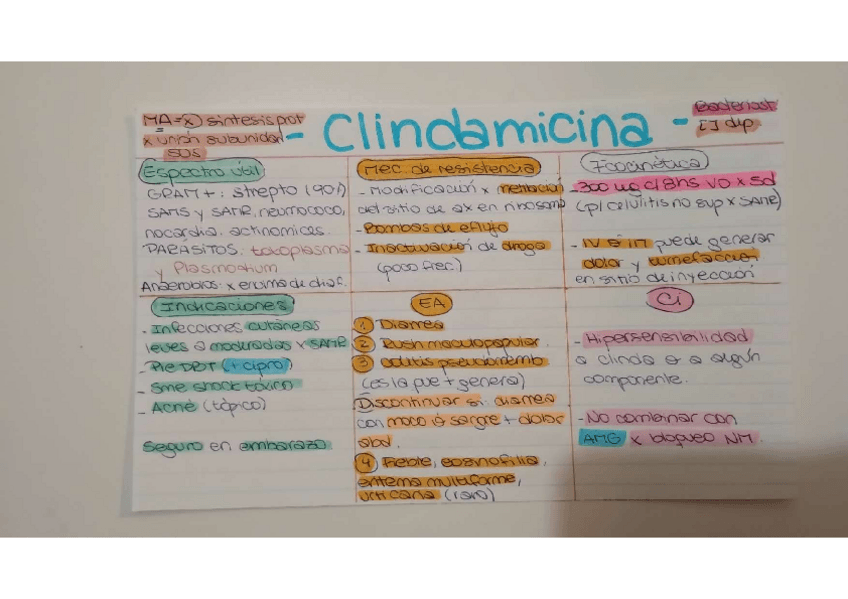 MA=(x) síntesis prot
x unión subunidad
50S
- Clindamicina -
Bacteriost
[ ] dep
Espectro útil
GRAM +: strepto (90%)
SAMS y SAMR, neumococo,
nocardia. actinomices.
PARÁSITOS: toxoplasma
y Plasmodium
Anaerobios: x encima de diaf.
Mec. de resistencia
- Modificación x metilación
del sitio de ax en ribosoma
- Bombas de eflujo
- Inactivación de droga
(poco frec.)
Fcocinética
- 300 mg c/8hs VO x 5d
(p/ celulitis no sup x SAMR)
- IV e IM puede generar
dolor y tumefacción
en sitio de inyección
Indicaciones
- Infecciones cutáneas
leves a moderadas x SAMR
- Pie DBT (+ cipro)
- Sme shock tóxico
- Acné (tópico)
Seguro en embarazo
EA
1 Diarrea
2 Rush maculopapular.
3 Colitis pseudomemb
(es la que + genera)
Discontinuar si: diarrea
con moco o sangre + dolor
abd.
4 Fiebre, eosinofilia,
eritema multiforme,
urticaria (raro)
Ci
- Hipersensibilidad
a clinda o a algún
componente.
- No combinar con
AMG x bloqueo NM.